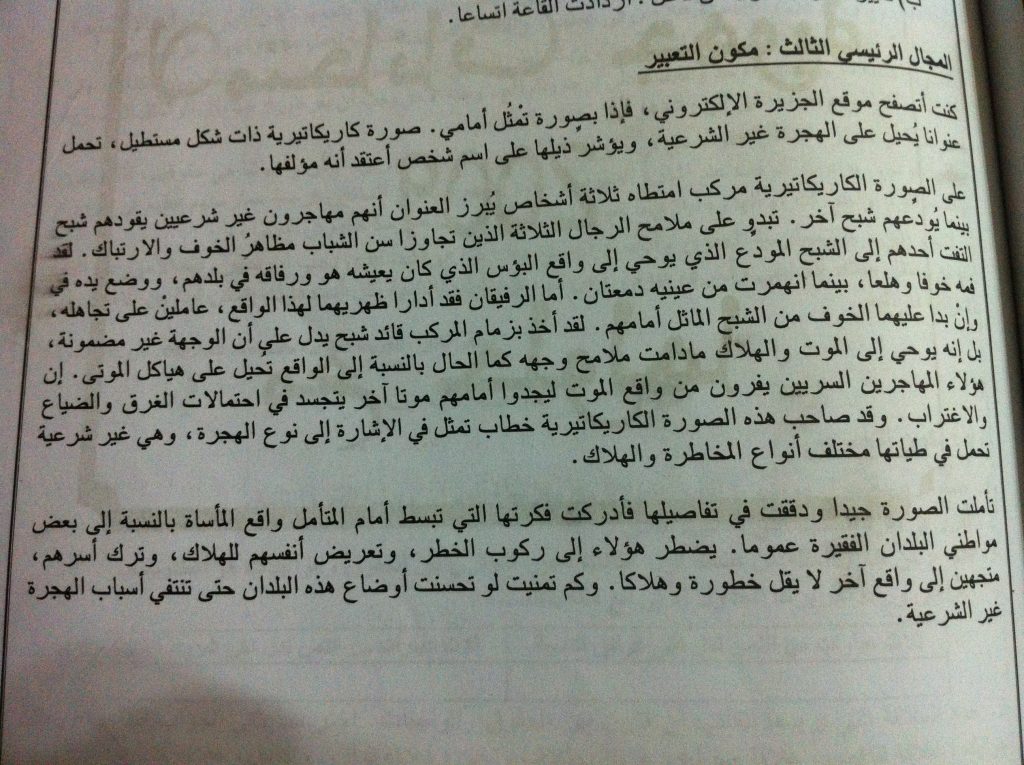 ازدادت القاعة اتساعا.
المجال الرئيسي الثالث : مكون التعبير
كنت أتصفح موقع الجزيرة الإلكتروني، فإذا بصورة تمْثُل أمامي. صورة كاريكاتيرية ذات شكل مستطيل، تحمل
عنوانا يُحيل على الهجرة غير الشرعية، ويؤشر ذيلها على اسم شخص أعتقد أنه مؤلفها.
على الصورة الكاريكاتيرية مركب امتطاه ثلاثة أشخاص يُبرز العنوان أنهم مهاجرون غير شرعيين يقودهم شبح
بينما يُودّعهم شبح آخر. تبدو على ملامح الرجال الثلاثة الذين تجاوزا سن الشباب مظاهرُ الخوف والارتباك. لقد
التفت أحدهم إلى الشبح المودّع الذي يوحي إلى واقع البؤس الذي كان يعيشه هو ورفاقه في بلدهم، ووضع يده في
فمه خوفا وهلعا، بينما انهمرت من عينيه دمعتان. أما الرفيقان فقد أدارا ظهريهما لهذا الواقع، عاملينْ على تجاهله،
وإنْ بدا عليهما الخوف من الشبح الماثل أمامهم. لقد أخذ بزمام المركب قائد شبح يدل على أن الوجهة غير مضمونة،
بل إنه يوحي إلى الموت والهلاك مادامت ملامح وجهه كما الحال بالنسبة إلى الواقع تُحيل على هياكل الموتى. إن
هؤلاء المهاجرين السريين يفرون من واقع الموت ليجدوا أمامهم موتا آخر يتجسد في احتمالات الغرق والضياع
والاغتراب. وقد صاحب هذه الصورة الكاريكاتيرية خطاب تمثل في الإشارة إلى نوع الهجرة، وهي غير شرعية
تحمل في طياتها مختلف أنواع المخاطرة والهلاك.
تأملت الصورة جيدا ودققت في تفاصيلها فأدركت فكرتها التي تبسط أمام المتأمل واقع المأساة بالنسبة إلى بعض
مواطني البلدان الفقيرة عموما. يضطر هؤلاء إلى ركوب الخطر، وتعريض أنفسهم للهلاك، وترك أسرهم،
متجهين إلى واقع آخر لا يقل خطورة وهلاكا. وكم تمنيت لو تحسنت أوضاع هذه البلدان حتى تنتفي أسباب الهجرة
غير الشرعية.